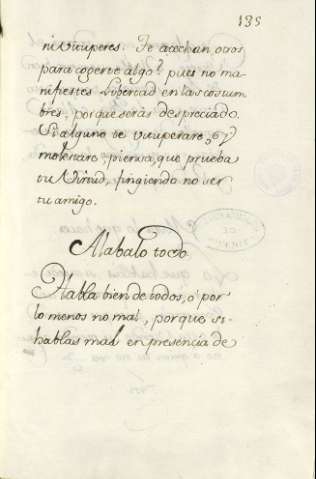 135
ni vituperes. Te acechan otros
para cogerte algo? pues no ma-
nifiestes libertad en las costum
bres, porque serás despreciado.
Si alguno te vituperare, ó
molestare, piensa, que prueba
tu Virtud, fingiendo no ser
tu amigo.
Alabalo todo
Habla bien de todos, ó por
lo menos no mal, porque si
hablas mal en presencia de